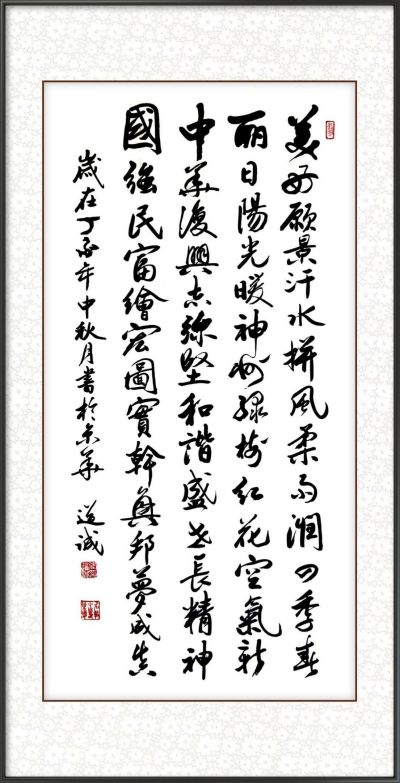 美好願景汗水拼風柔雨潤四季春
丽日陽光暖神州綠樹紅花空氣新
中華復興志彌堅和諧盛世長精神
國強民富繪宏圖實幹興邦夢成真
歲在丁酉年中秋月書於京華 道誠